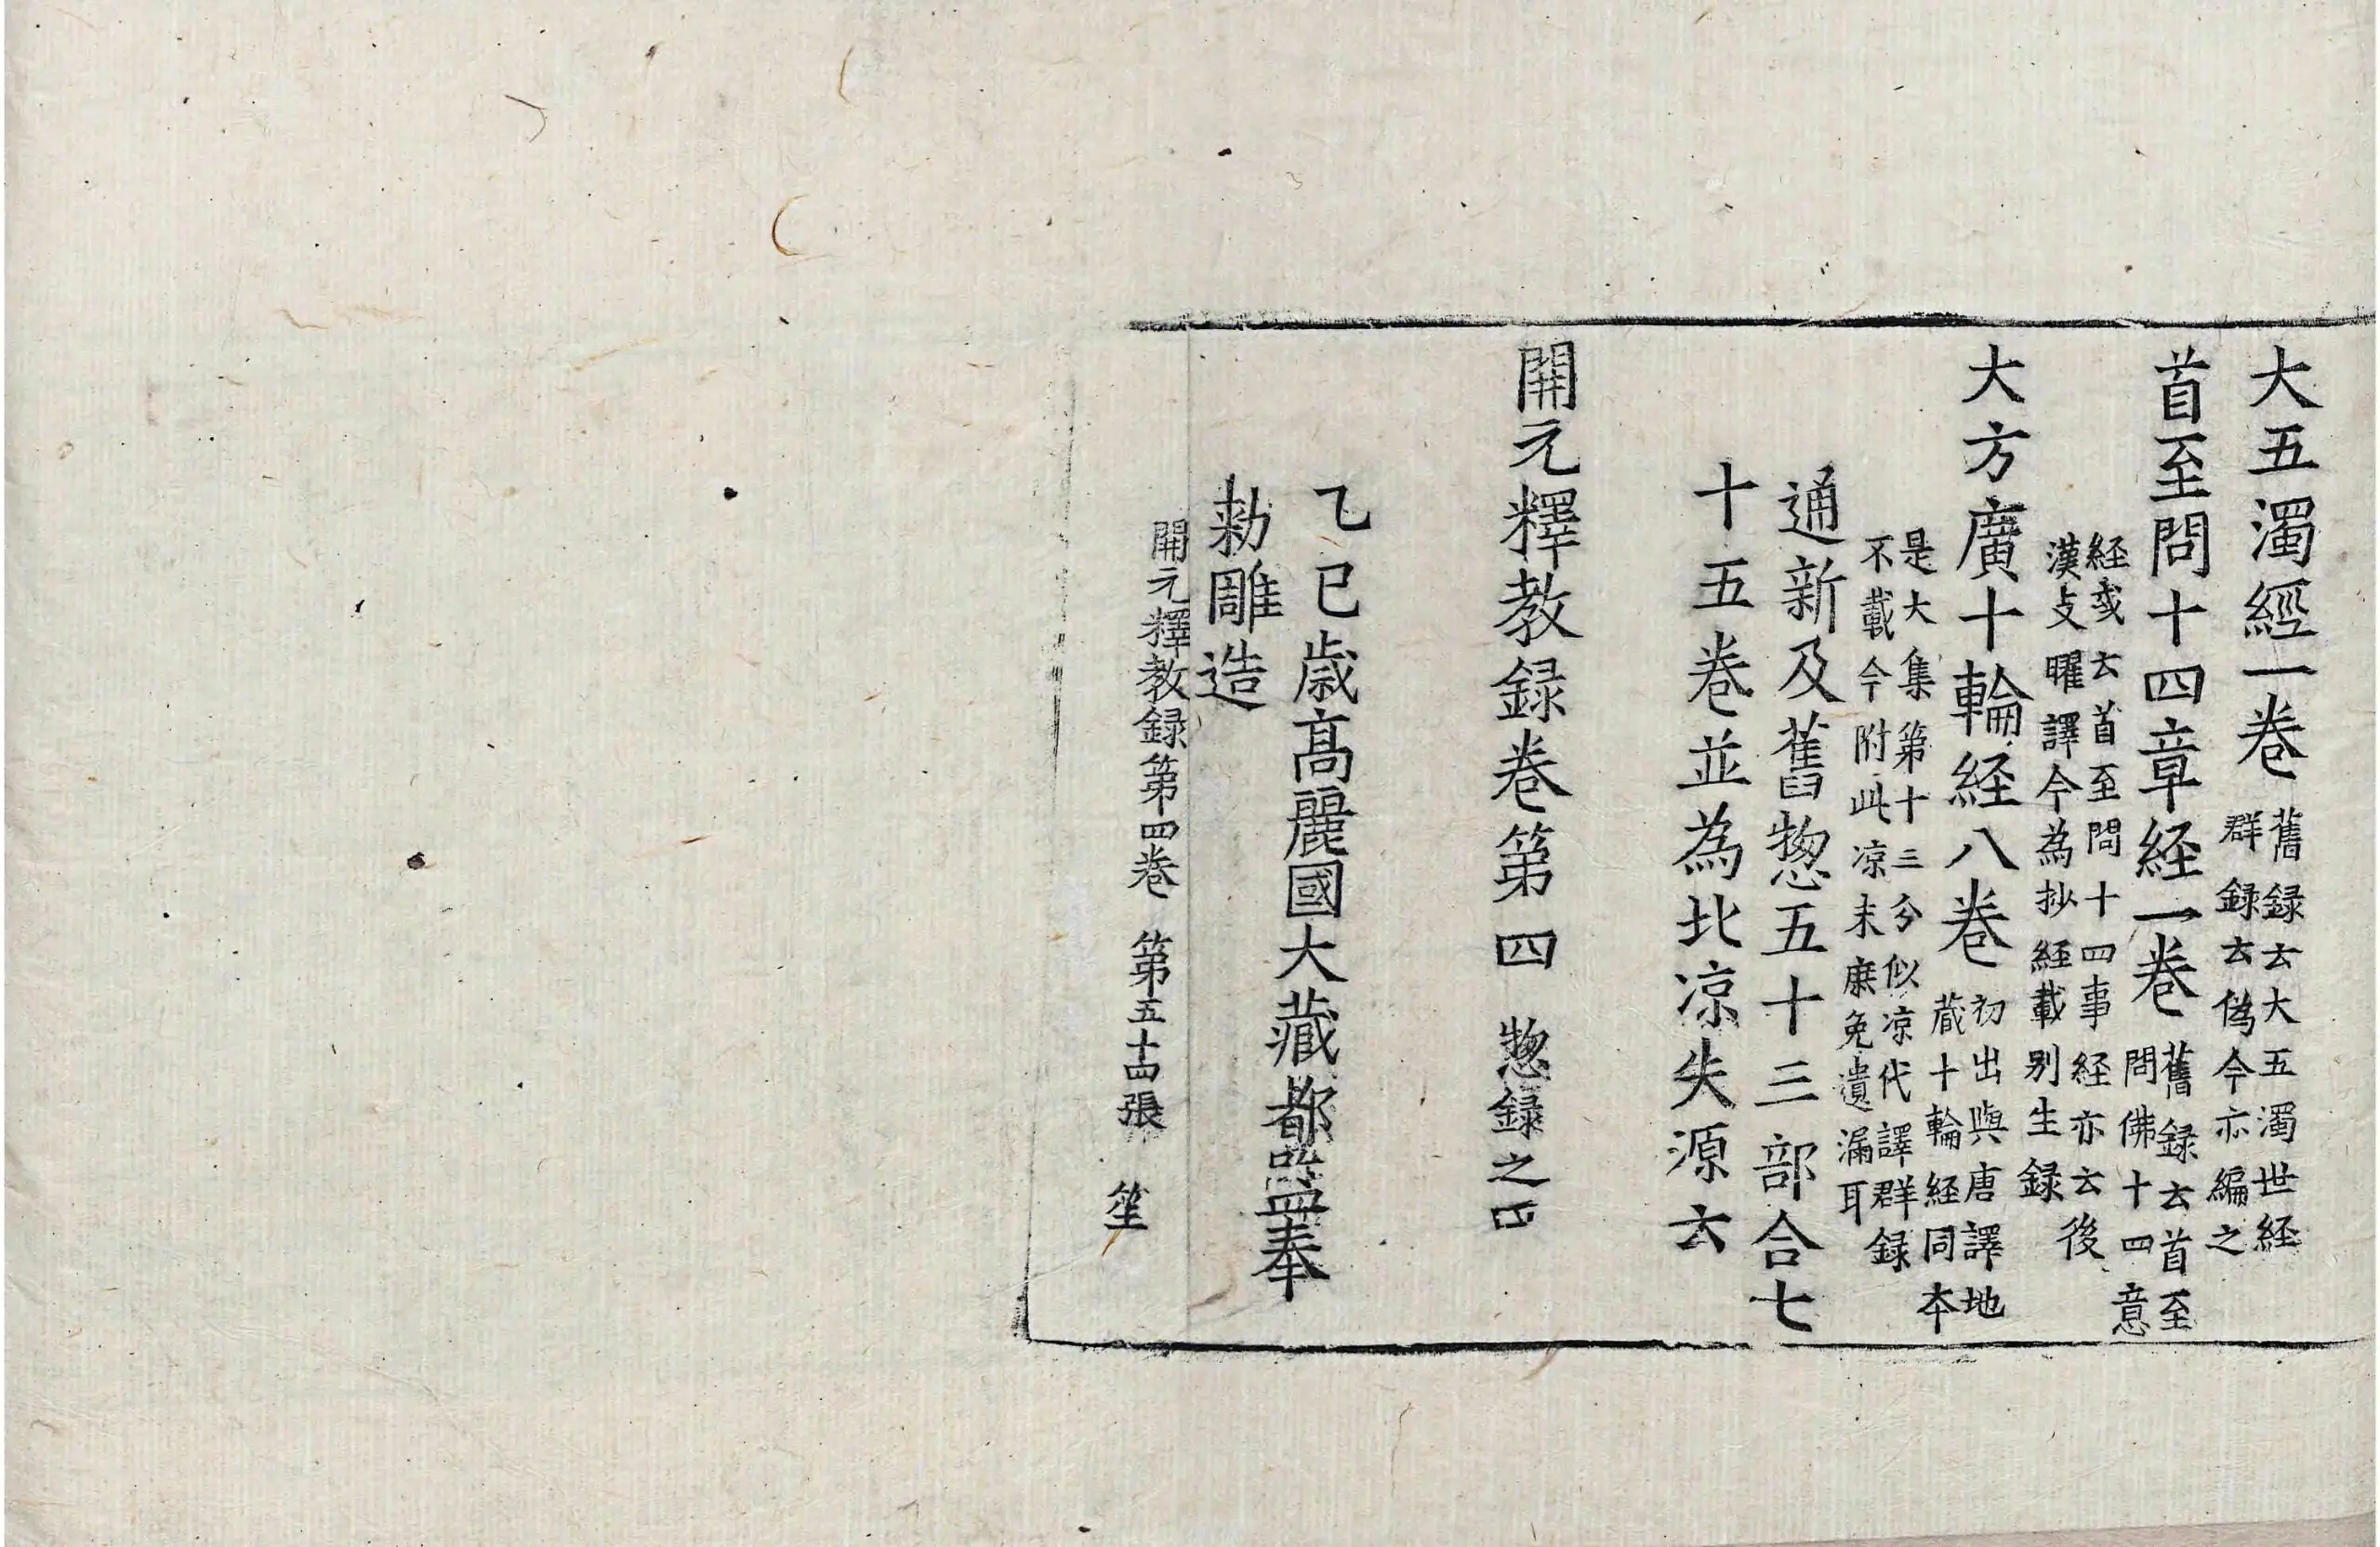 大五濁經一卷 舊録去大五濁世経
群録去偽今亦編之
首至問十四章経一卷 舊録去首至
問佛十四意
経或去首至問十四事経亦去後
漢攴曜譯今為抄経載别生録
大方廣十輪経八卷 初出與唐譯地
蔵十輪経同夲
是大集第十三分似凉代譯群録
不載今附此凉末庶免遺漏耳
通新及舊惣五十三部合七
十五卷並為北凉失源去
開元釋教録卷第四 惣録之四
乙巳歳髙麗國大藏都監奉
勑雕造
開元釋教録第四卷 第五十四張 笙